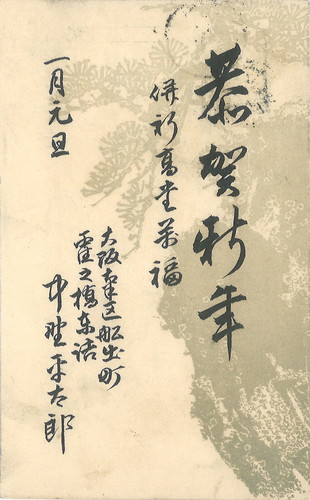 恭賀新年
併祈高堂萬福
一月元旦
大阪東区船出町
霞之橋東詰
中埜平太郎